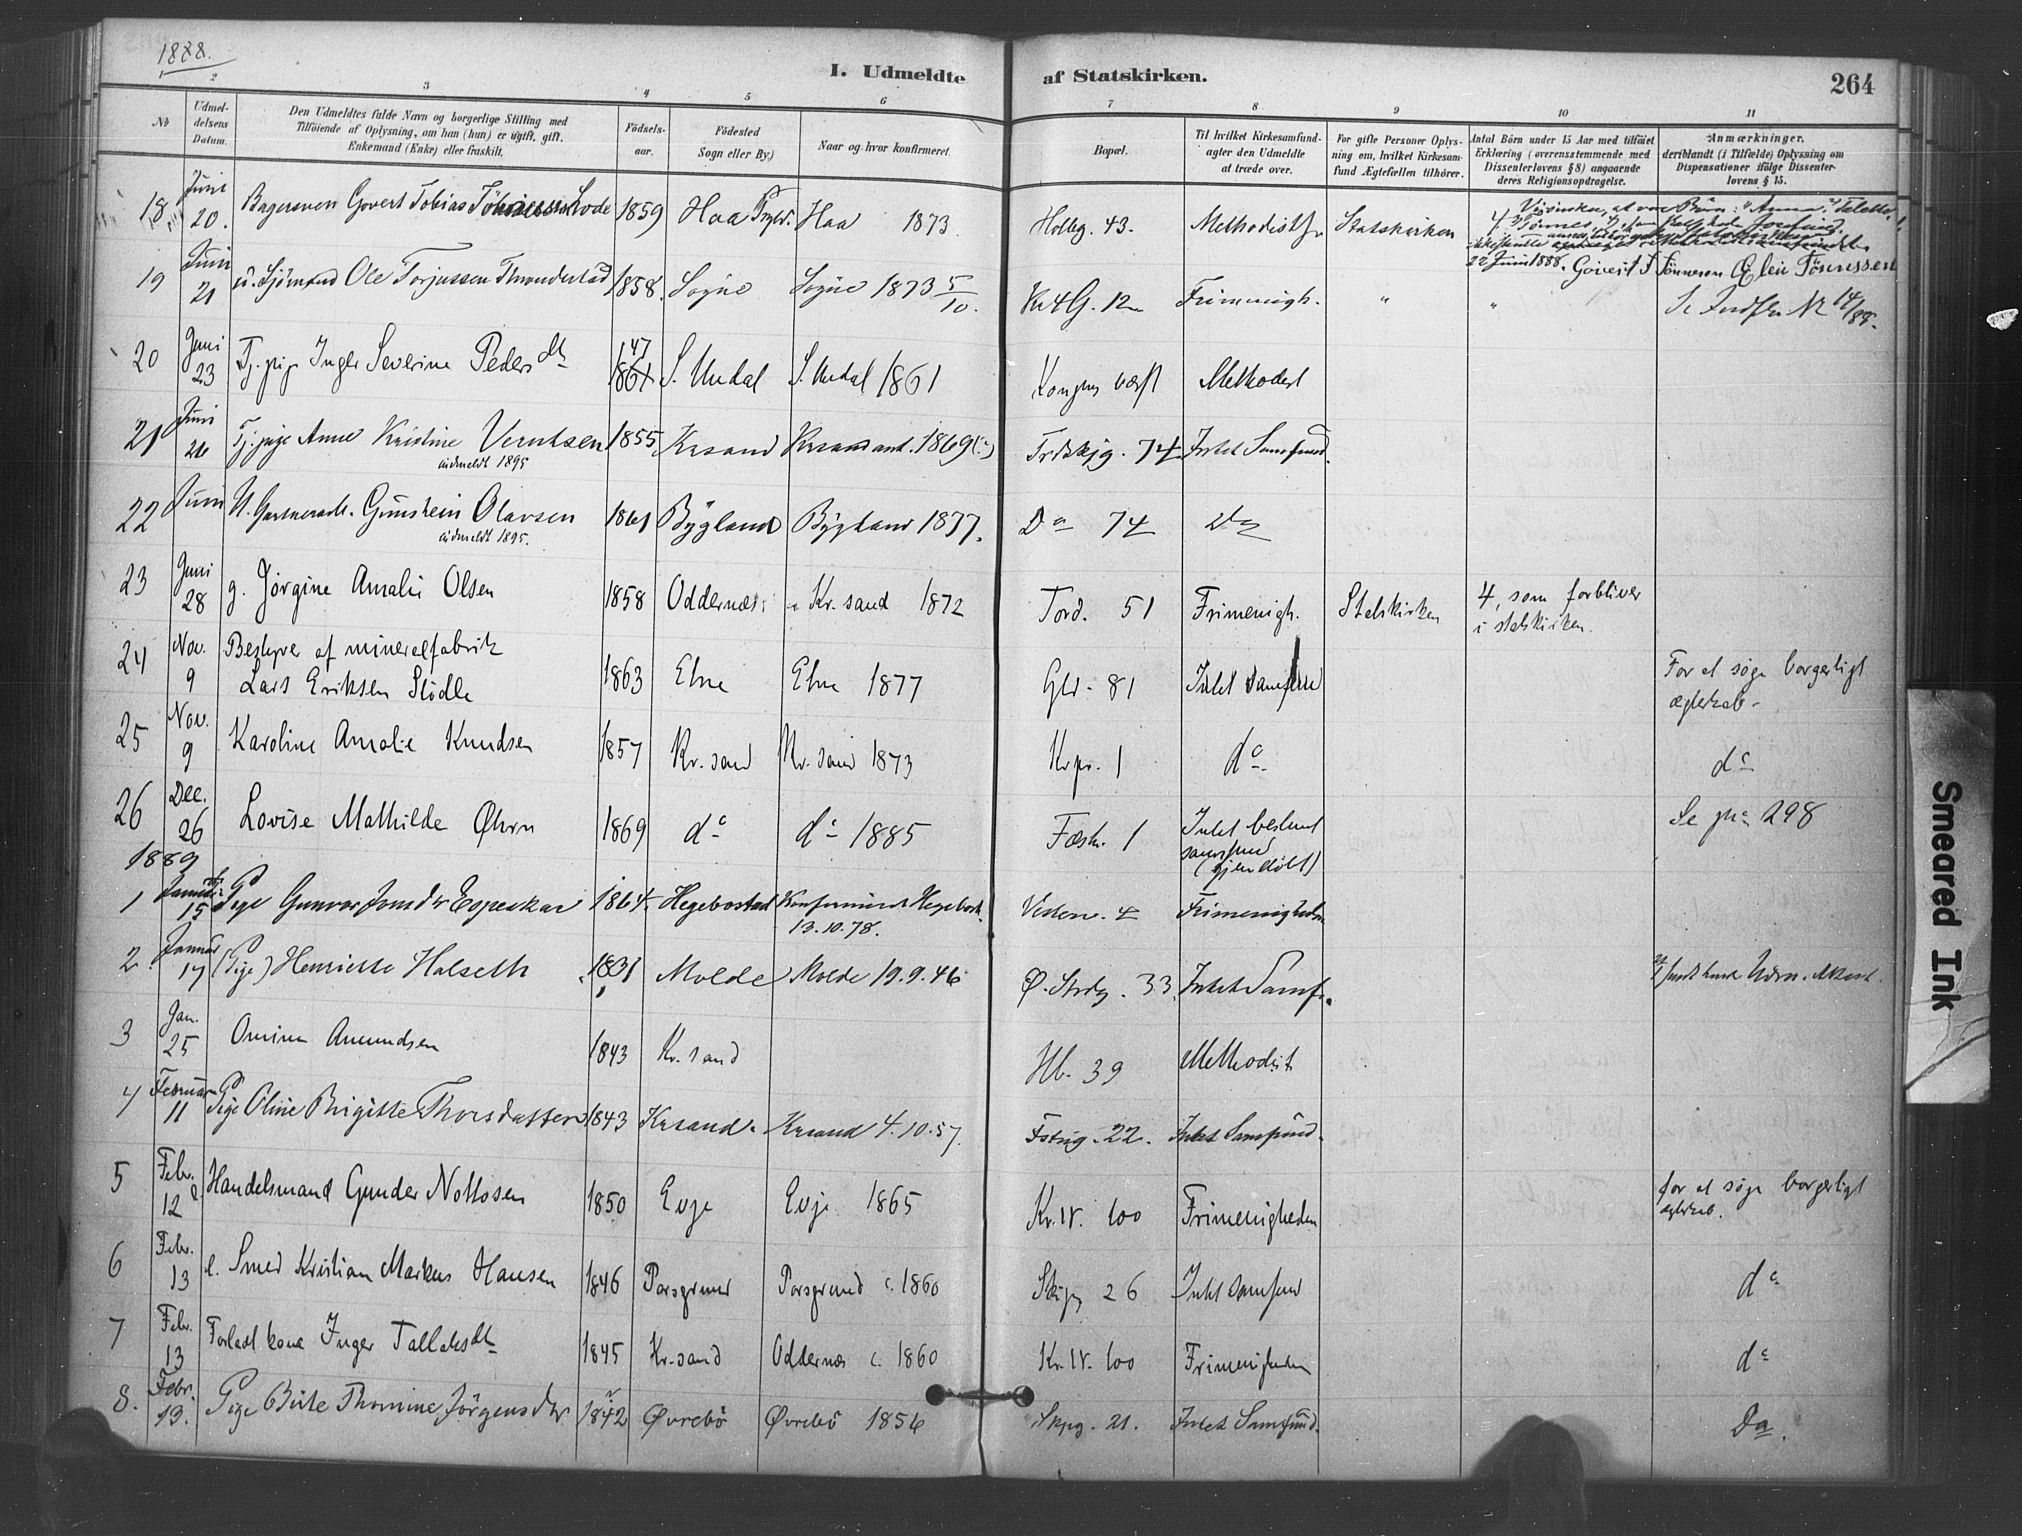 1888.
I. Udmeldte af Statskirken.
264
1 2 3 4 5 6 7 8 9 10 11
No
Udmeldelsens Datum.
Den Udmeldtes fulde Navn og borgerlige Stilling med
Tilføiende af Oplysning, om han (hun) er ugift, gift,
Enkemand (Enke) eller fraskilt.
Fødselsaar.
Fødested
Sogn eller By)
Naar og hvor konfirmeret
Bopæl.
Til hvilket Kirkesamfund
agter den Udmeldte
at træde over.
For gifte Personer Oplysning om, hvilket Kirkesamfund Ægtefællen tilhører.
Antal Børn under 15 Aar med tilføiet
Erklæring (overensstemmende med
Dissenterlovens § 8) angaaende
deres Religionsopdragelse.
Anmærkninger,
deriblandt (i Tilfælde) Oplysning om
Dispensationer ifølge Dissenterlovens § 15.
18 Juni 20. Bagersven Govert Tobias 1859 Haa Haa 1873 Holbg. 43. Statskirken 4
22 Juni 1888.
19 Juni 21 Sjömand Ole Torjussen 1858. Sogne Sogne 1873 5/10. Kr4G. 12 Frimenigh. " " Se No 14/88.
20 Juni 23 Tj. pig Inger Severine Peders dt 47 1861 S. Undal S. Undal 1861 Methodist
21 Juni 26 Tj. pige Anne Kristine Verntsen 1855 Krsand 1869 (?) 74 Intet Samfund.
udmeldt 1895
22 Juni Gunstein Olavsen 1861 Bÿgland Bÿgland 1877. Do 74 Do
udmeldt 1895.
23 Juni 28 g. Jørgine Amalie Olsen 1858 Oddernæs Kr. sand 1872 Tord. 51 Frimenigh. Statskirken 4, som forbliver
i statskirken.
24 Nov. 9 Bestyrer af mineralfabrik
Lars Eriksen Stödle 1863 Etne Etne 1877 Gld. 81 Intet samfund For at søge borgerligt
ægteskab.
25 Nov. 9 Karoline Amalie Knudsen 1857 Kr. sand Kr. sand 1873 Krpr. 1 do do
26 Dec. 26 Lovise Mathilde Øhrn 1869 do do 1885 Fæstn. 1 Intet bestemt
samfund
(gjendöbt) Se pag 298
1889
1 Januar 15 Pige Gunvor Jonsdtr Espeskar 1864. Hegebostad Konfirmeret Hegebost.
13.10.78. Vesterv. 4 Frimenigheden
2. Januar 17 (Pige) Henriette Halseth 1831 Molde Molde 19.9.46 Ø. Strdg. 33. Intet Samf.
3 Jan. 25 Omine Amundsen 1843 Kr. sand Hb. 39 Methodist
4 Februar 11 Pige Oline Birgitte Thorsdatter 1843 Krsand. Krsand 4.10.57. 22. Intet Samfund.
5 Febr. 12 Handelsmand Gunder Nottosen 1850 Evje Evje 1865 Kr. IV. 100 Frimenigheden for at søge borgerligt
ægteskab.
6 Febr. 13 e. Smed Kristian Markus Hansen 1846 Porsgrund Porsgrund c. 1860 Skipg 26 Intet samfund do
7 Febr. 13 Forladt kone Inger Tallaksdt 1845 Kr. sand Oddernæs c. 1860 Kr. IV. 100 Frimenigheden do
8. Febr. 13. Pige Birte Thomine Jörgensdtr 1842 Øvrebö Øvrebö 1856 Skpg. 21. Intet Samfund. Do.
Smeared Ink